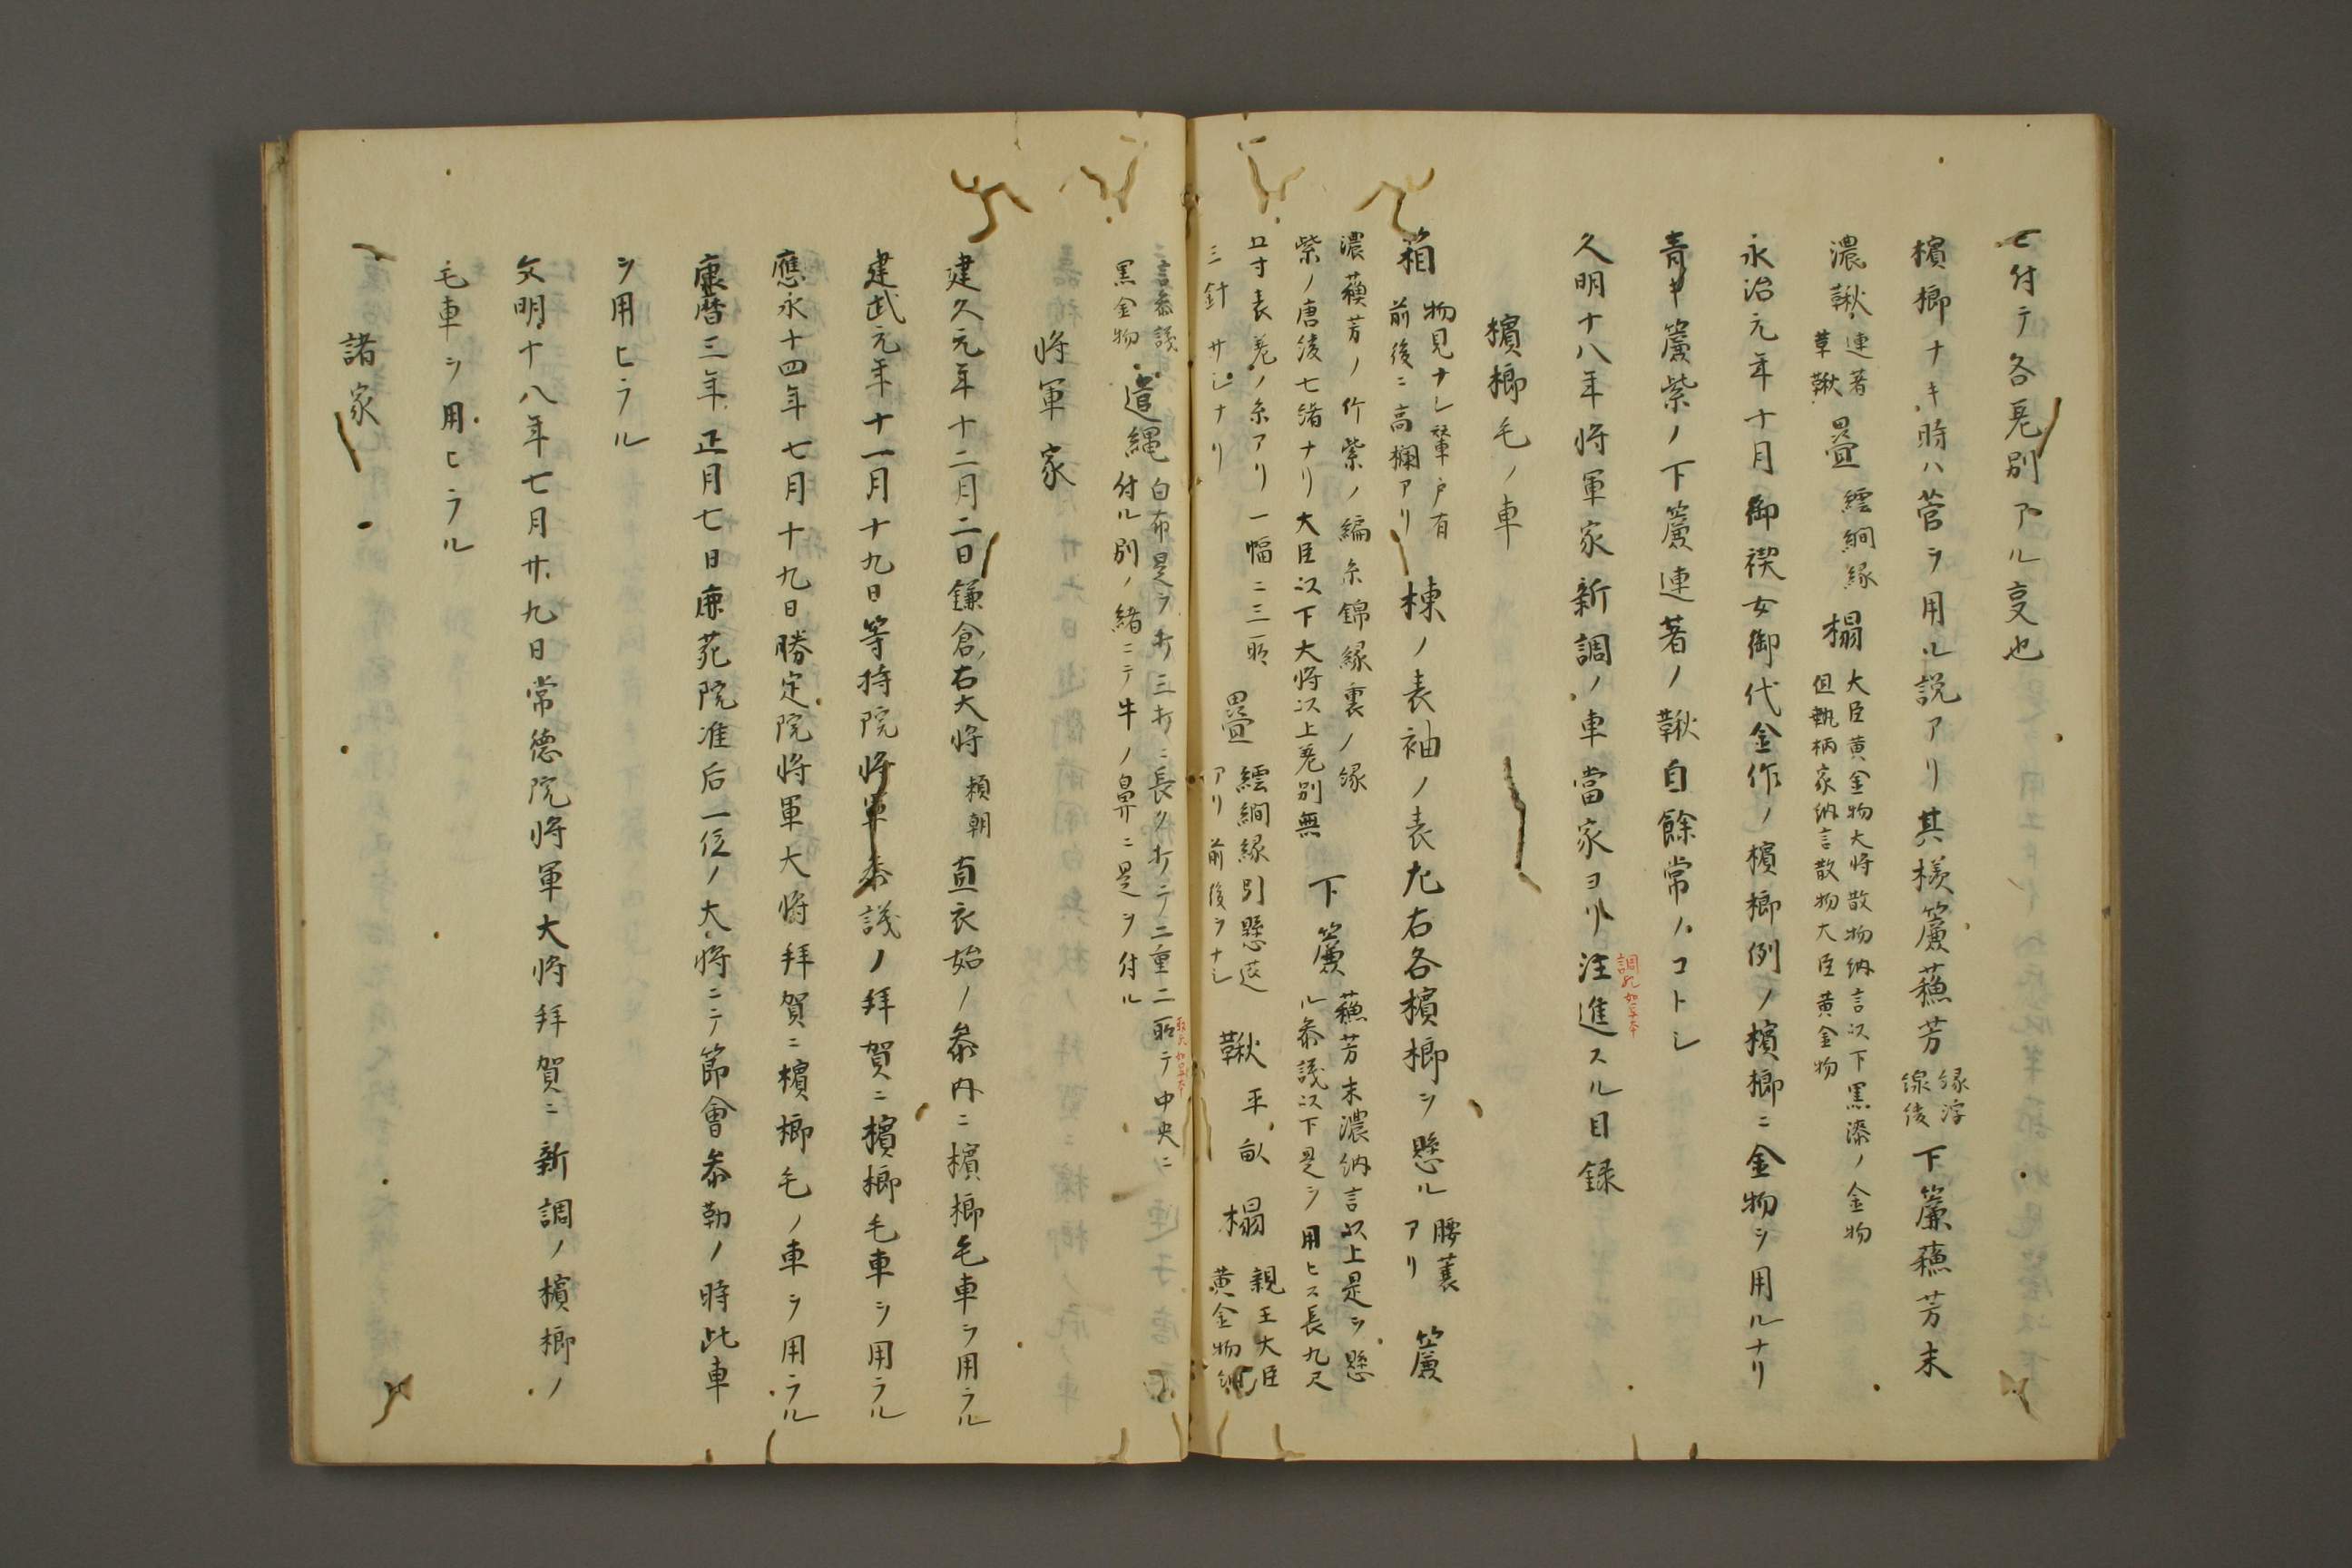 付テ各差別アル亊也
檳榔ナキ時ハ菅ヲ用ル説アリ其様簾蘓芳 縁浮
線綾 下簾蘓芳末
濃鞦 連著
草鞦 疊 繧繝縁 榻 大臣黄金物大将散物納言以下黒漆ノ金物
但執柄家納言散物大臣黄金物
永治元年十月御禊女御代金作ノ檳榔例ノ檳榔ニ金物ヲ用ルナリ
青キ簾紫ノ下簾連著ノ鞦自餘常ノコトシ
久明十八年将軍家新調ノ車當家ヨリ注進スル目録
調乱如写本
檳榔毛ノ車
箱 物見ナシ輦戸有
前後ニ高欄アリ 棟ノ表袖ノ表左右各檳榔ヲ懸ル 腰蓑
アリ 簾
濃蘓芳ノ竹紫ノ編糸錦縁裏ノ縁
紫ノ唐綾七緒ナリ大臣以下大将以上差別無 下簾 蘓芳末濃納言以上是ヲ懸
ル参議以下是ヲ用ヒス長九尺
寸表差ノ糸アリ一幅ニ三所
三針サシナリ 疊 繧繝縁引懸莚
アリ前後ヲナシ 鞦 平 榻 親王大臣
黄金物納
言参議
黒金物 遣縄 白布是ヲ打三打ニ長ク打テ二重二所テ中央ニ
付ル別ノ緒ニテ牛ノ鼻ニ是ヲ付ル
将軍家
建久元年十二月二日鎌倉右大将 頼朝 直衣始ノ参内ニ檳榔毛車ヲ用ラル
建武元年十一月十九日等持院将軍参議ノ拝賀ニ檳榔毛車ヲ用ラル
應永十四年七月十九日勝定院将軍大将拝賀ニ檳榔毛ノ車ヲ用ラル
康暦三年正月七日鹿苑院准后一位ノ大将ニテ節會参勤ノ時此車
ヲ用ヒラル
文明十八年七月廿九日常徳院将軍大将拝賀ニ新調ノ檳榔ノ
毛車ヲ用ヒラル
諸家